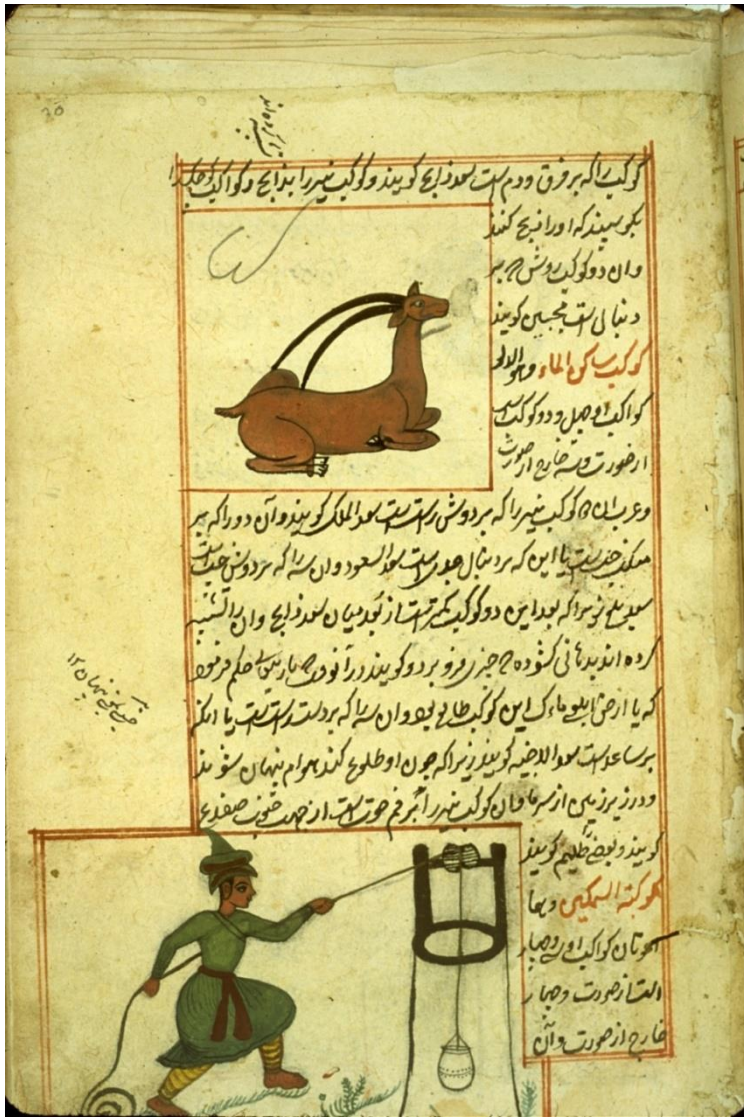 کوکب را که بر قرن دوم است سعد ذابح گویند و کوکب نیر را بذابح و کواکب
بگوسپند که او را ذبح کند
وان دو کوکب روشن که بر
دنبال است محبین گویند
کوکب ساکب الماء وهو الدلو
کواکب او چهل و دو کوکب است
از صورت و سه خارج از صورت
و عرب ان کوکب نیر را که بر دوش راست است سعد الملک گویند و آن دو را که بر
منکب چپ است با این که بر دنبال جدی است سعد السعود وان سه را که بر دست چپ است
سعد بلع زیرا که بعد این دو کوکب کمتر است از بعد میان سعد ذابح وان را تشبیه
کرده اند بدهانی کشوده که چیزی فرو برد و گویند در آنوقت که باریتعالی حکم فرمود
که یا ارض ابلعی ماءک این کوکب طالع بود وان سه را که بر دست راست است با انکه
بر ساعد است سعد الاخبیه گویند زیرا که چون او طلوع کند هوام پنهان شوند
و در زیر زمین از سرما وان کوکب نیر را که بر فم حوت است از جهت جنوب ضفدع
گویند و بعضی ظلیم گویند
کوکبة السمکتین وهما
الحوتان کواکب او سی و چهار
است از صورت و چهار
خارج از صورت و آن